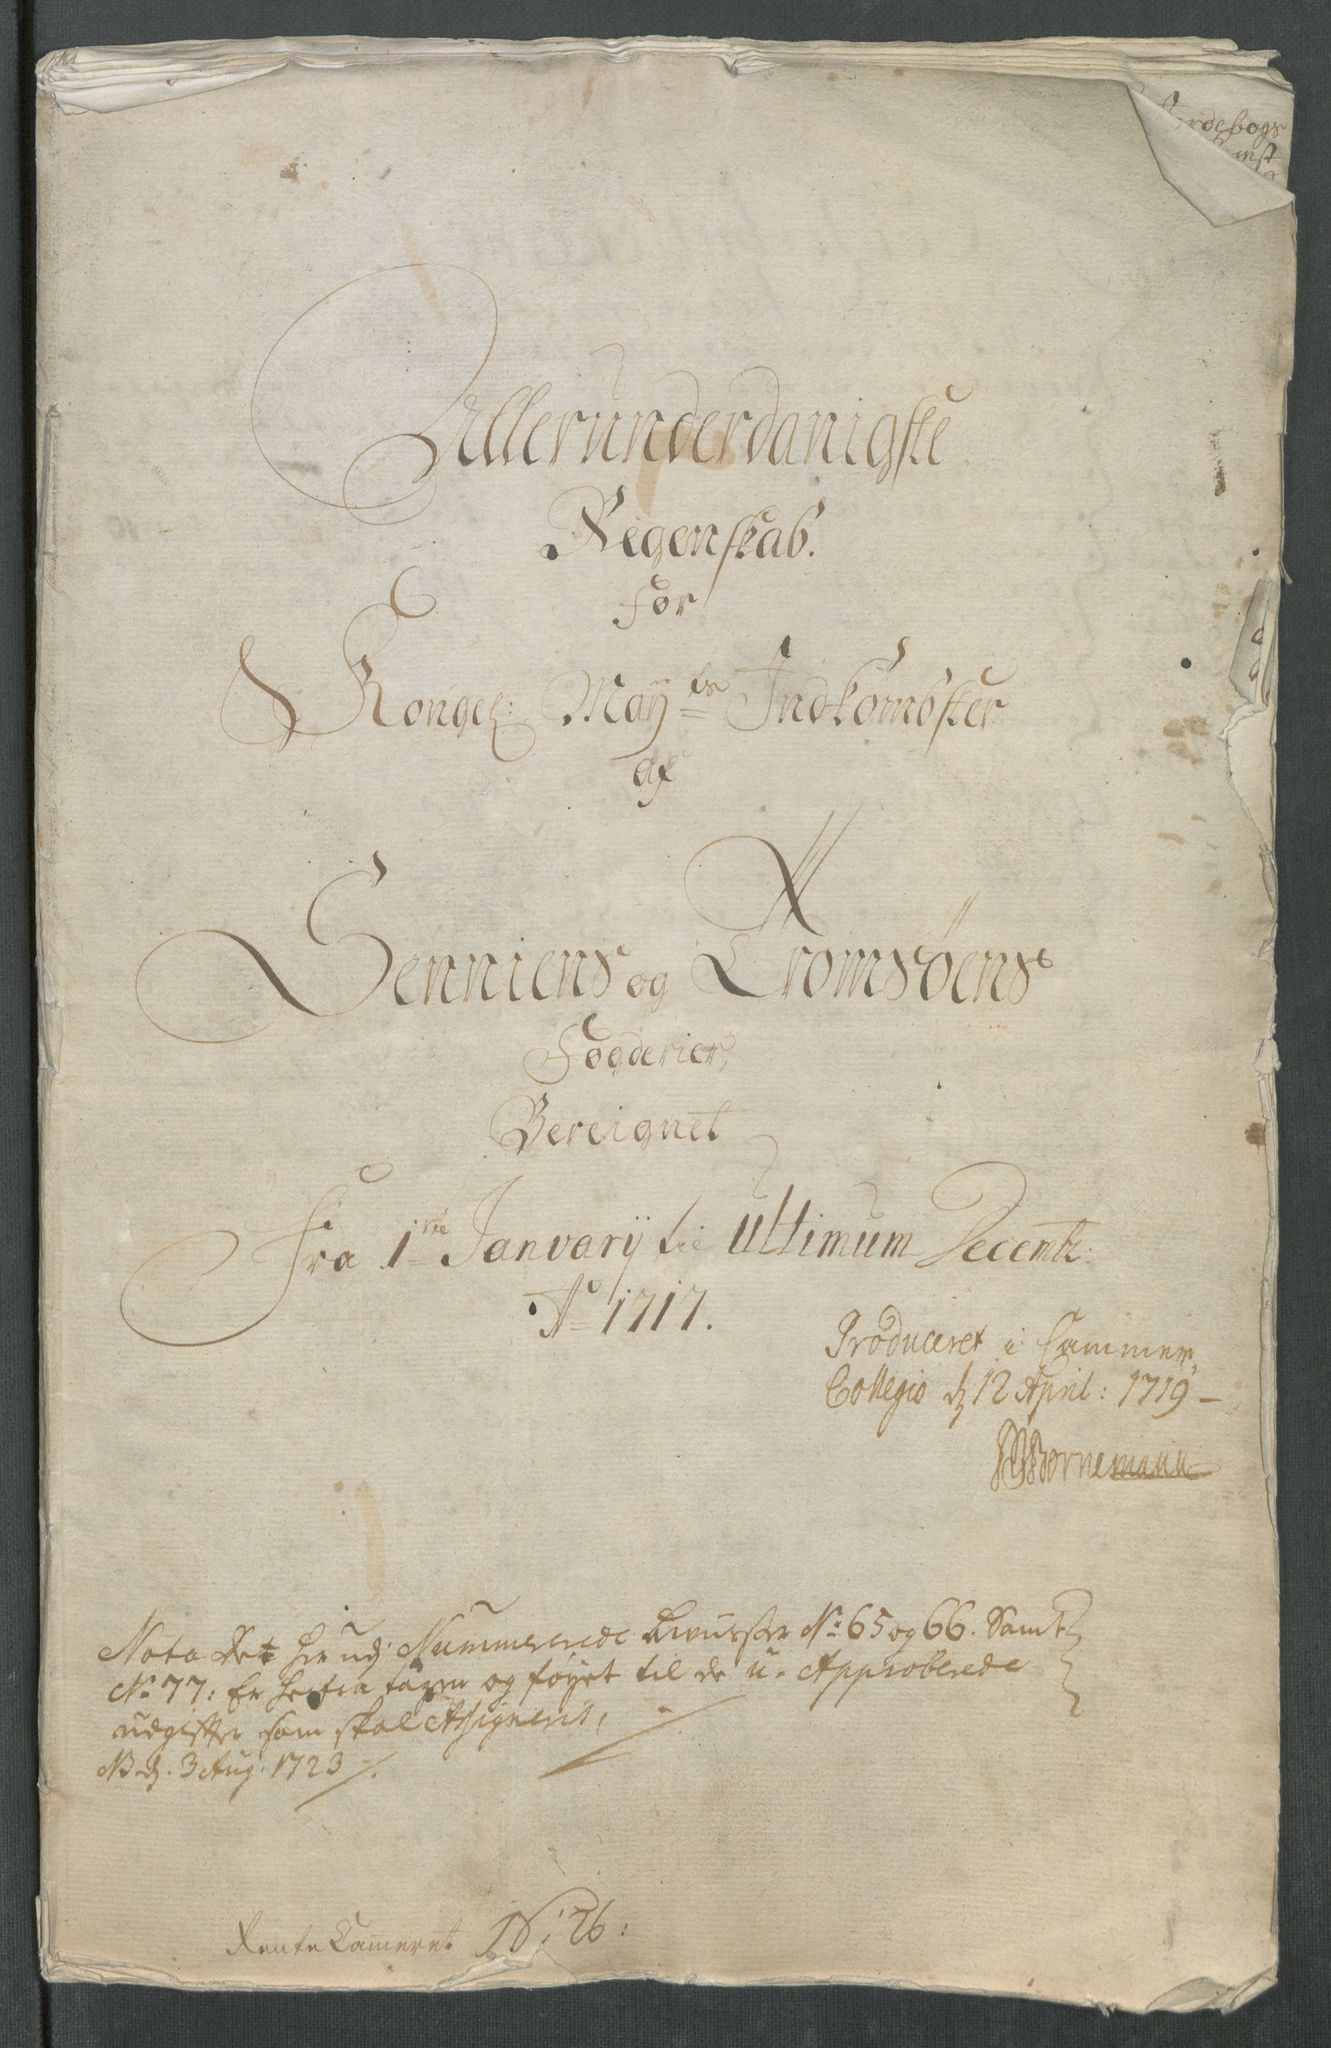 Jordebogs
Allerunderdanigste
Regenskab.
for
Kongel: May^ts Indkombster
af
Senniens og Tromsøens
Fogderier,
Bereignet
Fra 1^ste January til Ultimum Decembr:
A° 1717.
Produceret i Cammer
Collegio d 12 April: 1719 –
Bornemann
Nota Det her udj Nummerede No: 65 og 66. Samt
No 77: Er herfra tagen og føyet til de u-Approberede
udgifter som skal Assigneris,
NB d. 3 Aug. 1723
Rente Cameret